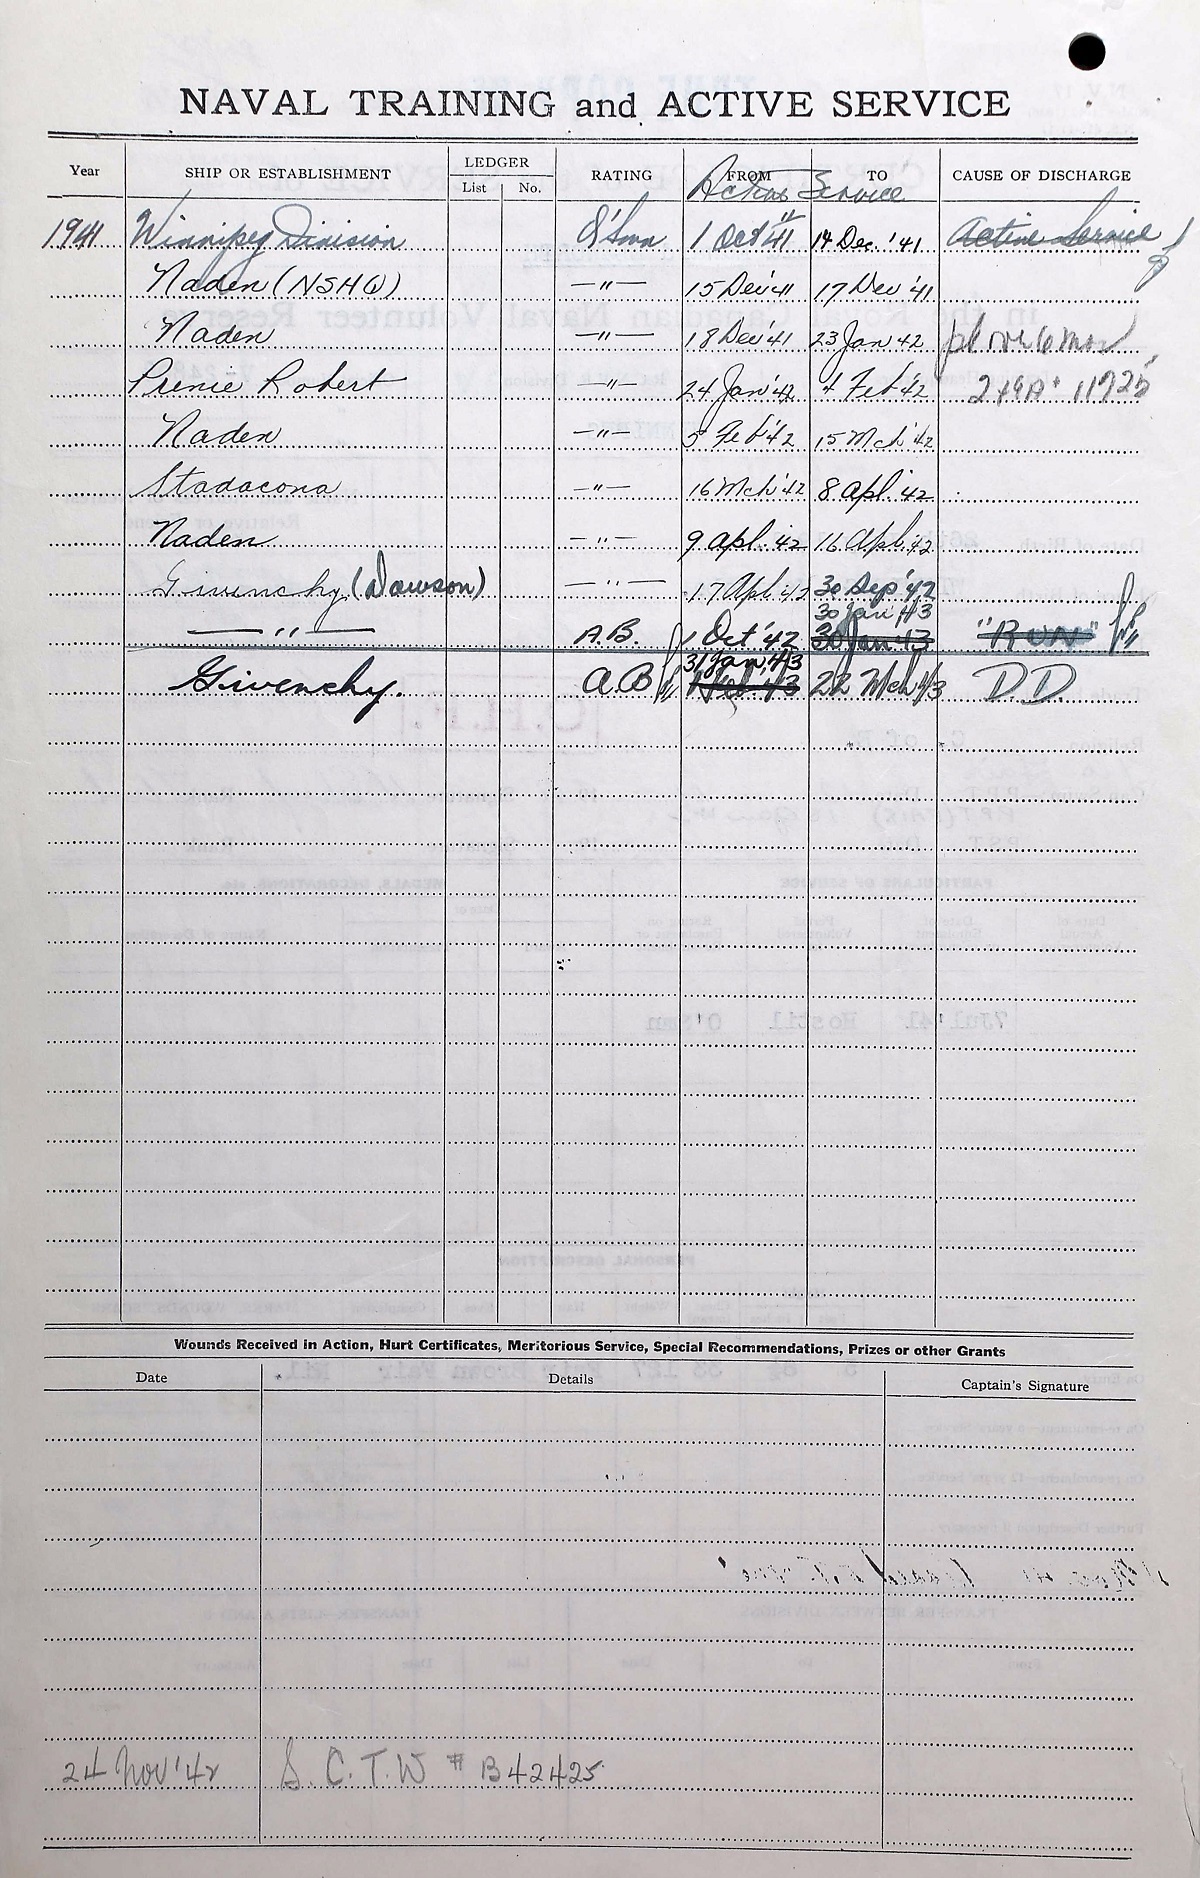 NAVAL TRAINING and ACTIVE SERVICE
Year SHIP OR ESTABLISHMENT LEDGER List No. RATING FROM TO CAUSE OF DISCHARGE
Active Service
1941 Winnipeg Division O'Smn 1 Oct '41 14 Dec. '41 Active Service
Naden (NSHQ) —"— 15 Dec '41 17 Dec '41
Naden —"— 18 Dec '41 23 Jan '42
Prince Robert —"— 24 Jan '42 4 Feb '42
Naden —"— 5 Feb '42 15 Mch '42
Stadacona —"— 16 Mch '42 8 Apl. '42
Naden —"— 9 Apl. '42 16 Apl. '42
Givenchy (Dawson) —"— 17 Apl '42 30 Sep '42
30 Jan '43
—"— A.B. 1 Oct '42 30 Jan '43 "RUN"
31 Jan '43
Givenchy. A.B 1 Feb. '43 22 Mch '43 D.D.
Wounds Received in Action, Hurt Certificates, Meritorious Service, Special Recommendations, Prizes or other Grants
Date Details Captain's Signature
24 Nov '42 S. C. T. W # B42425